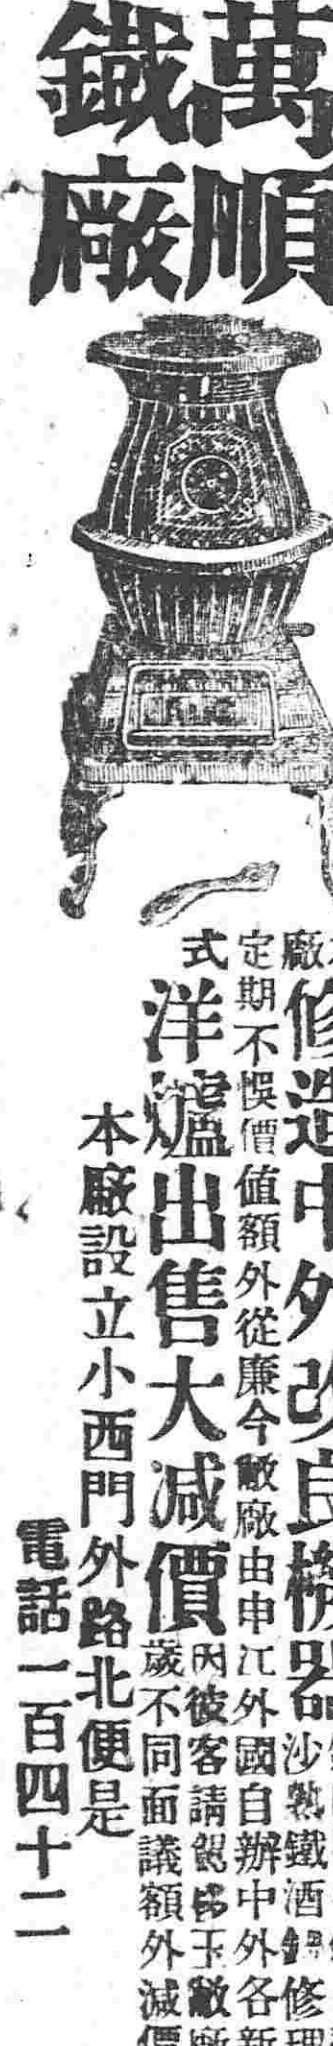 萬順
鐵廠
廠修造中外改良機器
沙熟鐵酒鍋修理
定期不悞價值額外從廉今敝廠由申江外國自辦中外各新
式洋爐出售大減價
因彼客請
玉敝廠
歲不同面議額外減價
本廠設立小西門外路北便是
電話一百四十二